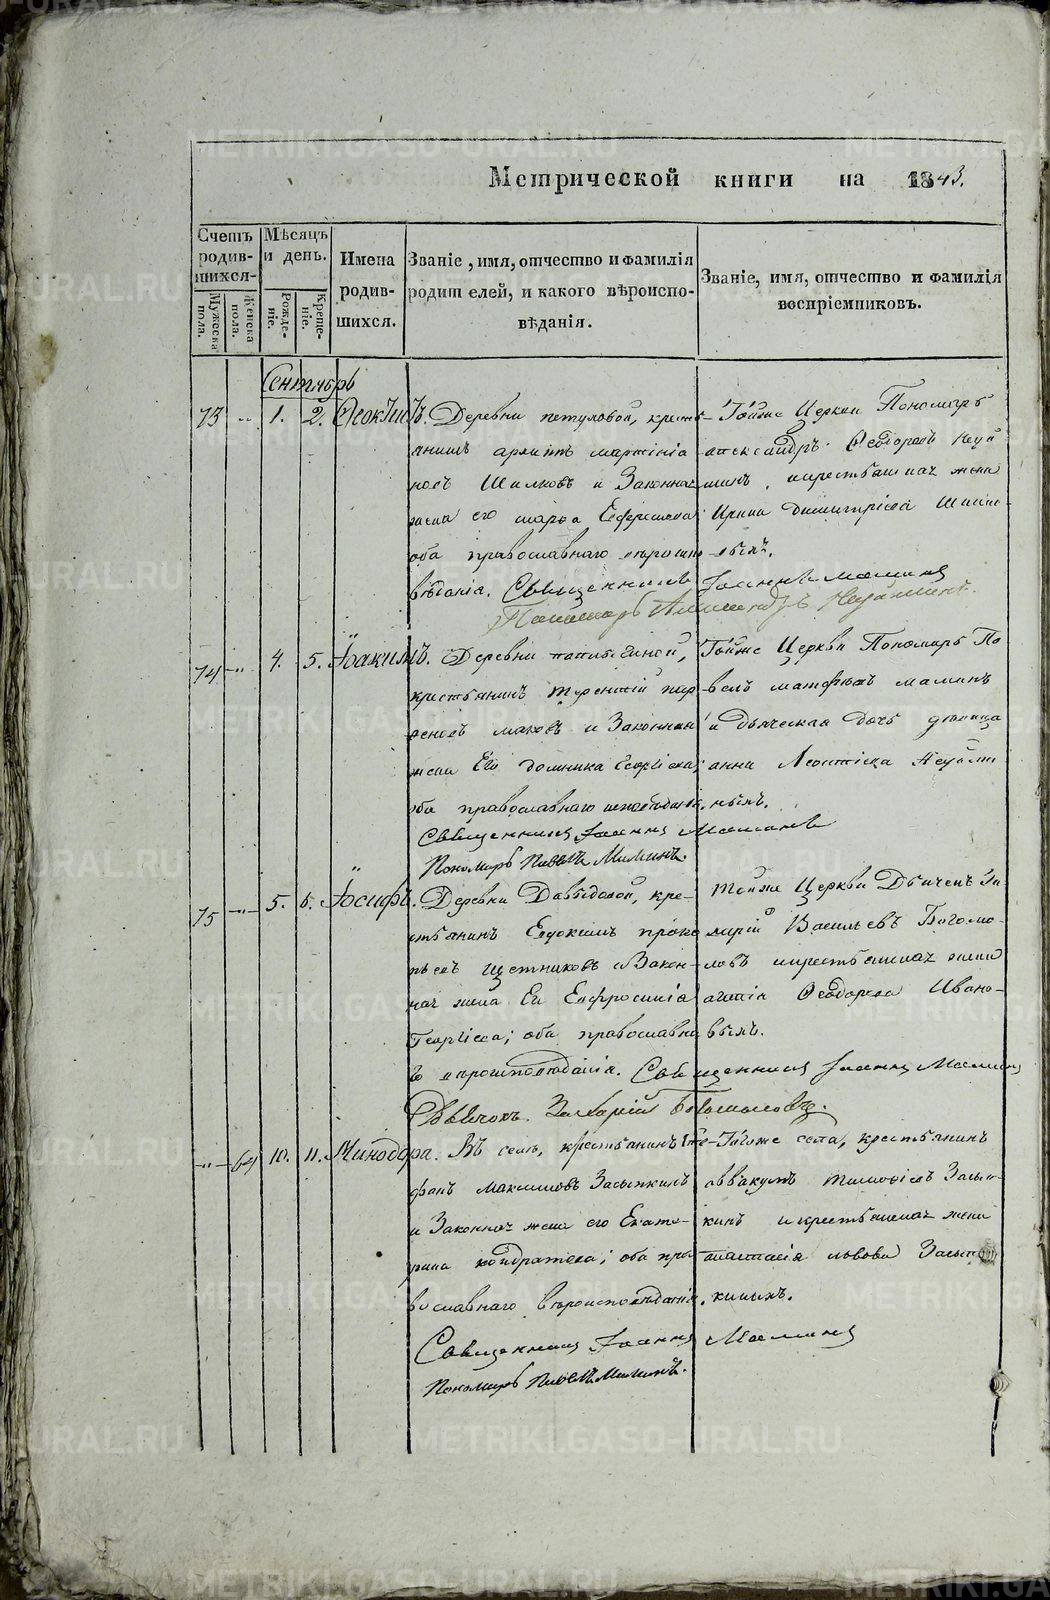 Метрической книги на 1843.
Счетъ родив-шихся.
Мужеска пола.
Женска пола.
Мѣсяцъ и день.
Рожде-ніе.
Креще-ніе.
Имена
родив-
шихся.
Званіе, имя, отчество и фамилія
родителей, и какого вѣроиспо-
вѣданія.
Званіе, имя, отчество и фамилія
воспріемниковъ.
Сентябрь
73 -"- 1. 2. Ѳеоктистъ. Деревни петуховой, кресть-
янинъ архипъ мартинія
новъ Шилковъ и Законная
жена его марѳа Ефремова
оба православнаго вѣроиспо-
вѣданія. Священникъ Іоаннъ Маминъ
Пономарь Александръ
Тойже Церкви Пономарь
александръ Ѳеодоровъ
и крестьянская жена
Ирина димитріева
74 -"- 4. 5. Іоакимъ. Деревни
крестьянинъ терентій
и Законная
жена Его домника Георгіева;
оба православнаго исповѣданія.
Священникъ Іоаннъ Маминъ
Пономарь Павелъ Маминъ.
Тойже Церкви Пономарь Па-
велъ матфѣевъ маминъ
и Дьяческая дочь дѣвица
анна Леонтіева
75 -"- 5. 6. Іосифъ. Деревни Давыдовой, кре-
стьянинъ Евдокимъ проко
пьевъ Щетниковъ и Закон-
ная жена Ег Евфросинія
Георгіева; оба православна
го вѣроисповѣданія. Священникъ Іоаннъ Маминъ
Дьячокъ Захарій Богомоловъ.
Тойже Церкви Дьячекъ За-
харій Васильевъ Богомо-
ловъ и крестьянская жена
Ѳеодорова Ивано-
выхъ.
-"- 64 10. 11. Минодора. Въ селѣ, крестьянинъ Сте-
фанъ Максимовъ Засыпкинъ
и Законная жена его Екате-
рина кондратова; оба пра
вославнаго вѣроисповѣданія.
Священникъ Іоаннъ Маминъ
Пономарь Павелъ Маминъ.
Тогоже села, крестьянинъ
аввакумъ тимоѳеевъ Засып-
кинъ и крестьянская жена
анастасія львова Засып
киныхъ.
METRIKI.GASO-URAL.RU